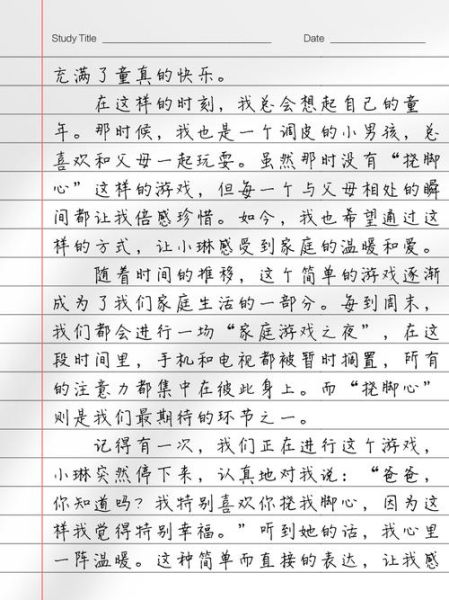 Study Title
Date
充满了童真的快乐。
在这样的时刻，我总会想起自己的童
年。那时候，我也是一个调皮的小男孩，总
喜欢和父母一起玩耍。虽然那时没有“挠脚
心”这样的游戏，但每一个与父母相处的瞬
间都让我倍感珍惜。如今，我也希望通过这
样的方式，让小琳感受到家庭的温暖和爱。
随着时间的推移，这个简单的游戏逐渐
成为了我们家庭生活的一部分。每到周末，
我们都会进行一场“家庭游戏之夜”，在这
段时间里，手机和电视都被暂时搁置，所有
的注意力都集中在彼此身上。而“挠脚心”
则是我们最期待的环节之一。
记得有一次，我们正在进行这个游戏，
小琳突然停下来，认真地对我说：“爸爸，
你知道吗？我特别喜欢你挠我脚心，因为这
样我觉得特别幸福。”听到她的话，我心里
一阵温暖。这种简单而直接的表达，让我感